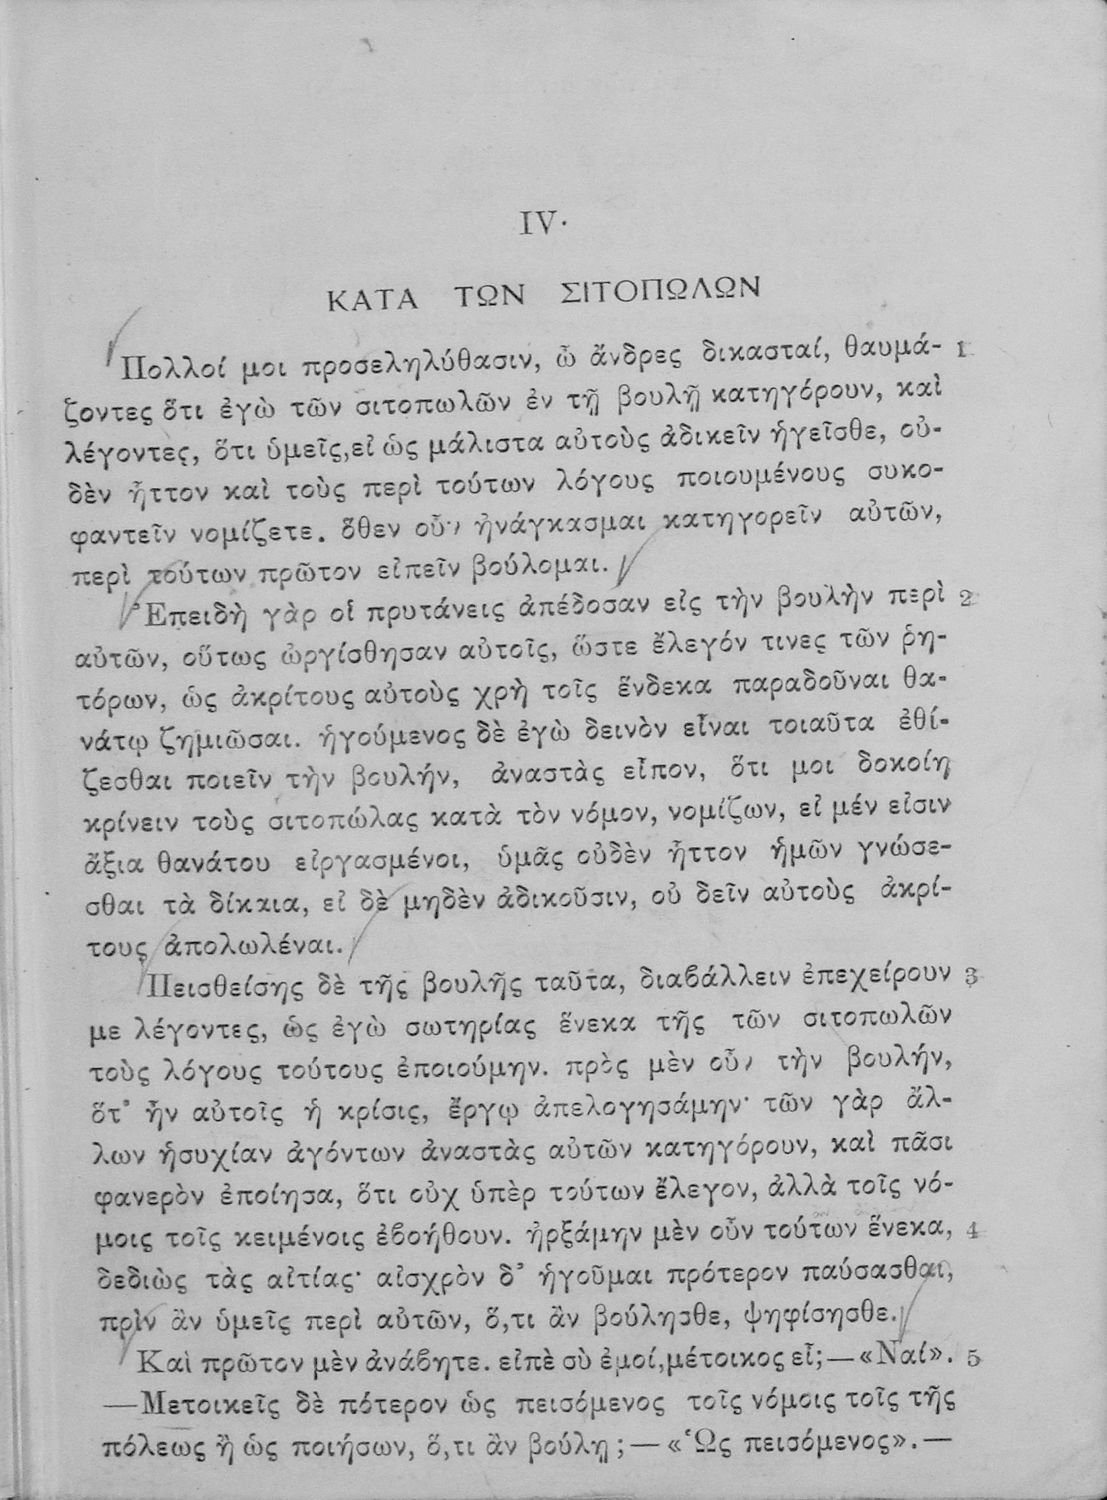 IV.
ΚΑΤΑ ΤΩΝ ΣΙΤΟΠΩΛΩΝ
Πολλοί μοι προσεληλύθασιν, ὦ ἄνδρες δικασταί, θαυμά- 1
ζοντες ὅτι ἐγὼ τῶν σιτοπωλῶν ἐν τῇ βουλῇ κατηγόρουν, καὶ
λέγοντες, ὅτι ὑμεῖς, εἰ ὡς μάλιστα αὐτοὺς ἀδικεῖν ἡγεῖσθε, οὐ-
δὲν ἧττον καὶ τοὺς περὶ τούτων λόγους ποιουμένους συκο-
φαντεῖν νομίζετε. ὅθεν οὖν ἠνάγκασμαι κατηγορεῖν αὐτῶν,
περὶ τούτων πρῶτον εἰπεῖν βούλομαι.
Ἐπειδὴ γὰρ οἱ πρυτάνεις ἀπέδοσαν εἰς τὴν βουλὴν περὶ 2
αὐτῶν, οὕτως ὠργίσθησαν αὐτοῖς, ὥστε ἔλεγόν τινες τῶν ῥη-
τόρων, ὡς ἀκρίτους αὐτοὺς χρὴ τοῖς ἕνδεκα παραδοῦναι θα-
νάτῳ ζημιῶσαι. ἡγούμενος δὲ ἐγὼ δεινὸν εἶναι τοιαῦτα ἐθί-
ζεσθαι ποιεῖν τὴν βουλήν, ἀναστὰς εἶπον, ὅτι μοι δοκοίη
κρίνειν τοὺς σιτοπώλας κατὰ τὸν νόμον, νομίζων, εἰ μέν εἰσιν
ἄξια θανάτου εἰργασμένοι, ὑμᾶς οὐδὲν ἧττον ἡμῶν γνώσε-
σθαι τὰ δίκαια, εἰ δὲ μηδὲν ἀδικοῦσιν, οὐ δεῖν αὐτοὺς ἀκρί-
τους ἀπολωλέναι.
Πεισθείσης δὲ τῆς βουλῆς ταῦτα, διαβάλλειν ἐπεχείρουν 3
με λέγοντες, ὡς ἐγὼ σωτηρίας ἕνεκα τῆς τῶν σιτοπωλῶν
τοὺς λόγους τούτους ἐποιούμην. πρὸς μὲν οὖν τὴν βουλήν,
ὅτ᾿ ἦν αὐτοῖς ἡ κρίσις, ἔργῳ ἀπελογησάμην· τῶν γὰρ ἄλ-
λων ἡσυχίαν ἀγόντων ἀναστὰς αὐτῶν κατηγόρουν, καὶ πᾶσι
φανερὸν ἐποίησα, ὅτι οὐχ ὑπὲρ τούτων ἔλεγον, ἀλλὰ τοῖς νό-
μοις τοῖς κειμένοις ἐβοήθουν. ἠρξάμην μὲν οὖν τούτων ἕνεκα, 4
δεδιὼς τὰς αἰτίας· αἰσχρὸν δ᾿ ἡγοῦμαι πρότερον παύσασθαι,
πρὶν ἂν ὑμεῖς περὶ αὐτῶν, ὅ,τι ἂν βούλησθε, ψηφίσησθε.
Καὶ πρῶτον μὲν ἀνάβητε. εἰπὲ σὺ ἐμοί, μέτοικος εἶ;—«Ναί». 5
—Μετοικεῖς δὲ πότερον ὡς πεισόμενος τοῖς νόμοις τοῖς τῆς
πόλεως ἢ ὡς ποιήσων, ὅ,τι ἂν βούλῃ; — «Ὡς πεισόμενος».—